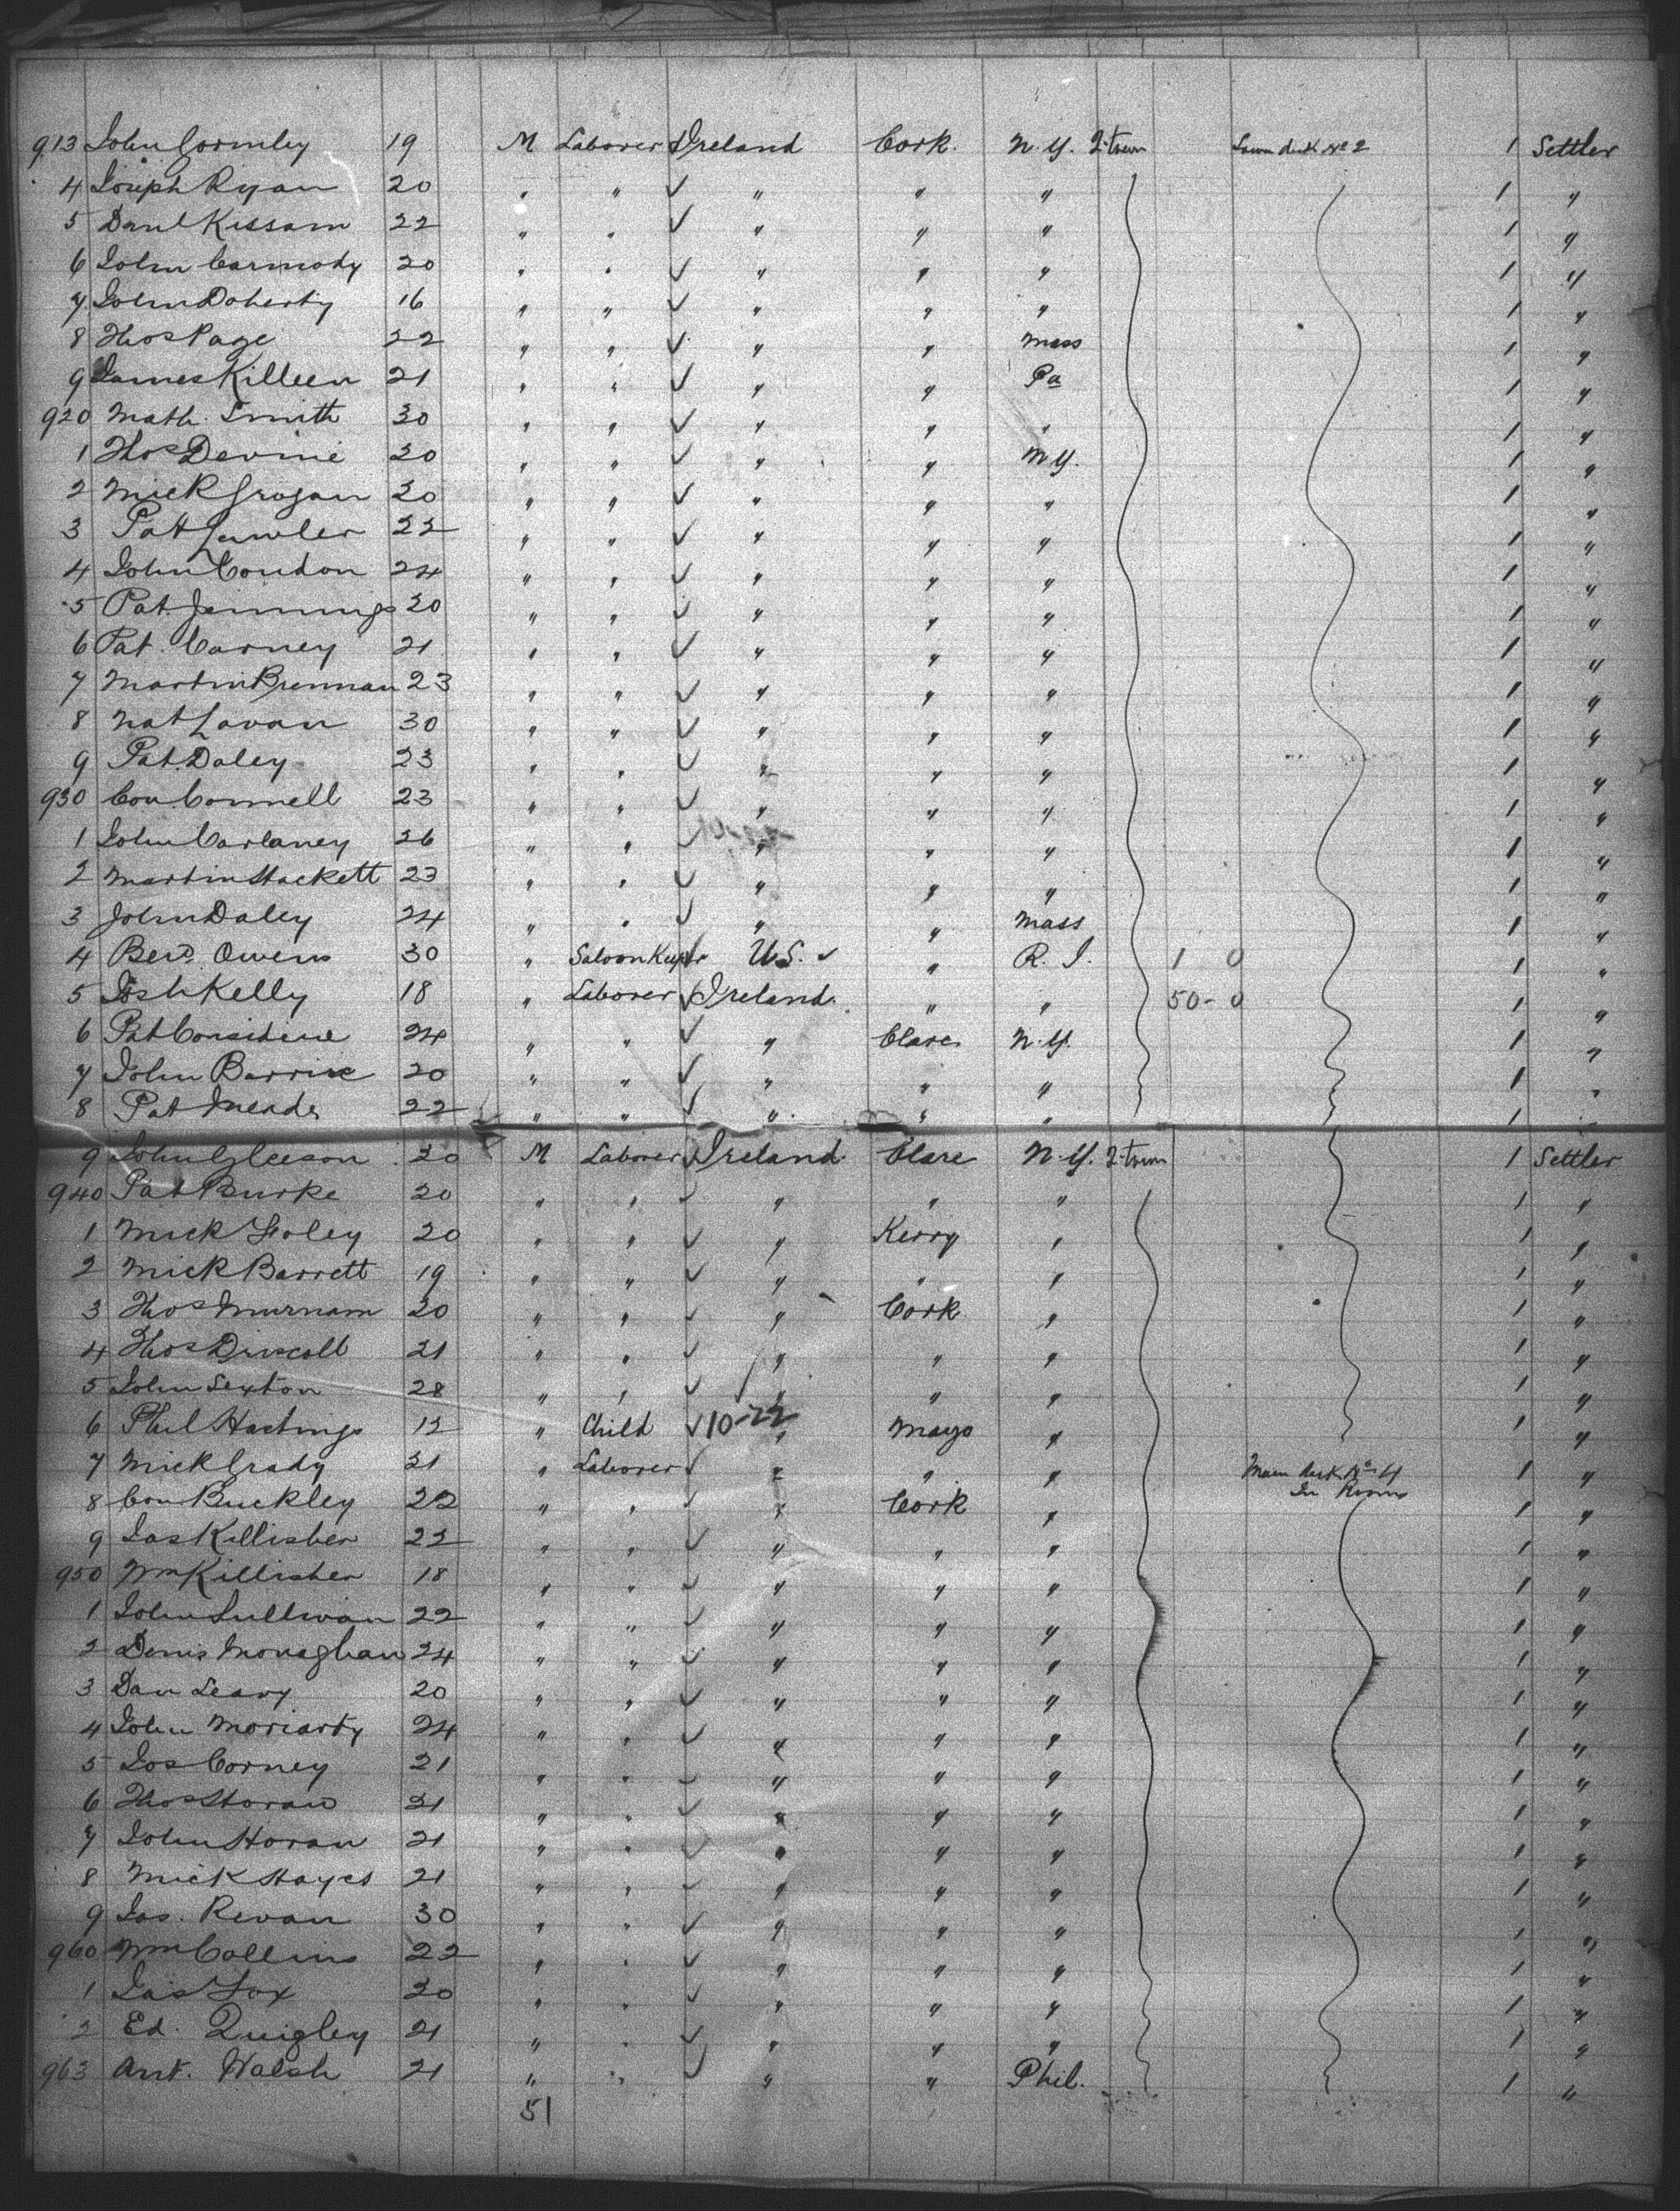 913 John Gormley 19 M Laborer ✓ Ireland Cork. N.Y. 2 trum Lower deck No 2 1 Settler
4 Joseph Ryan 20 " " ✓ " " " 1 "
5 Danl Kissam 22 " " ✓ " " " 1 "
6 John Carmody 20 " " ✓ " " " 1 "
7 John Doherty 16 " " ✓ " " " 1 "
8 Thos Page 22 " " ✓ " " Mass 1 "
9 James Killeen 21 " " ✓ " " Pa 1 "
920 Math. Smith 30 " " ✓ " " " 1 "
1 Thos Devine 20 " " ✓ " " N.Y. 1 "
2 Mick Grogan 20 " " ✓ " " " 1 "
3 Pat Lawler 22 " " ✓ " " " 1 "
4 John Condon 24 " " ✓ " " " 1 "
5 Pat Jennings 20 " " ✓ " " " 1 "
6 Pat. Carney 21 " " ✓ " " " 1 "
7 Martin Brennan 23 " " ✓ " " " 1 "
8 Nat Lavan 30 " " ✓ " " " 1 "
9 Pat. Daley 23 " " ✓ " " " 1 "
930 Con. Connell 23 " " ✓ " " " 1 "
1 John Carlaney 26 " " ✓ " " " 1 "
2 Martin Hackett 23 " " ✓ " " " 1 "
3 John Daley 24 " " ✓ " " Mass 1 "
4 Berd. Owens 30 " Saloon Keepr ✓ U.S. ✓ " R.I. 1 0 1 "
5 Josh Kelly 18 " Laborer ✓ Ireland " " 50-0 1 "
6 Pat Considine 24 " " ✓ " Clare N.Y. 1 "
7 John Barrie 20 " " ✓ " " " 1 "
8 Pat Meade 22 " " ✓ " " " 1 "
9 John Gleeson 30 M Laborer ✓ Ireland Clare N.Y. 2 trum 1 Settler
940 Pat Burke 20 " " ✓ " " " 1 "
1 Mick Foley 20 " " ✓ " Kerry " 1 "
2 Mick Barrett 19 " " ✓ " " " 1 "
3 Thos Murnam 20 " " ✓ " Cork " 1 "
4 Thos Driscoll 21 " " ✓ " " " 1 "
5 John Sexton 28 " " ✓ " " " 1 "
6 Phil Hastings 12 " Child ✓ 10-22 " Mayo " 1 "
7 Mick Grady 31 " Laborer ✓ " " " Main deck No 4 1 "
In Rooms
8 Con Buckley 22 " " ✓ " Cork " 1 "
9 Jas Killisher 22 " " ✓ " " " 1 "
950 Wm Killisher 18 " " ✓ " " " 1 "
1 John Sullivan 22 " " ✓ " " " 1 "
2 Denis Monaghan 24 " " ✓ " " " 1 "
3 Dan Leary 20 " " ✓ " " " 1 "
4 John Moriarty 24 " " ✓ " " " 1 "
5 Jos Corney 21 " " ✓ " " " 1 "
6 Thos Horan 21 " " ✓ " " " 1 "
7 John Horan 21 " " ✓ " " " 1 "
8 Mick Hayes 21 " " ✓ " " " 1 "
9 Jas. Revan 30 " " ✓ " " " 1 "
960 Wm Collins 22 " " ✓ " " " 1 "
1 Jas Fox 20 " " ✓ " " " 1 "
2 Ed. Quigley 21 " " ✓ " " " 1 "
963 Ant. Walsh 21 " " ✓ " " Phil. 1 "
51